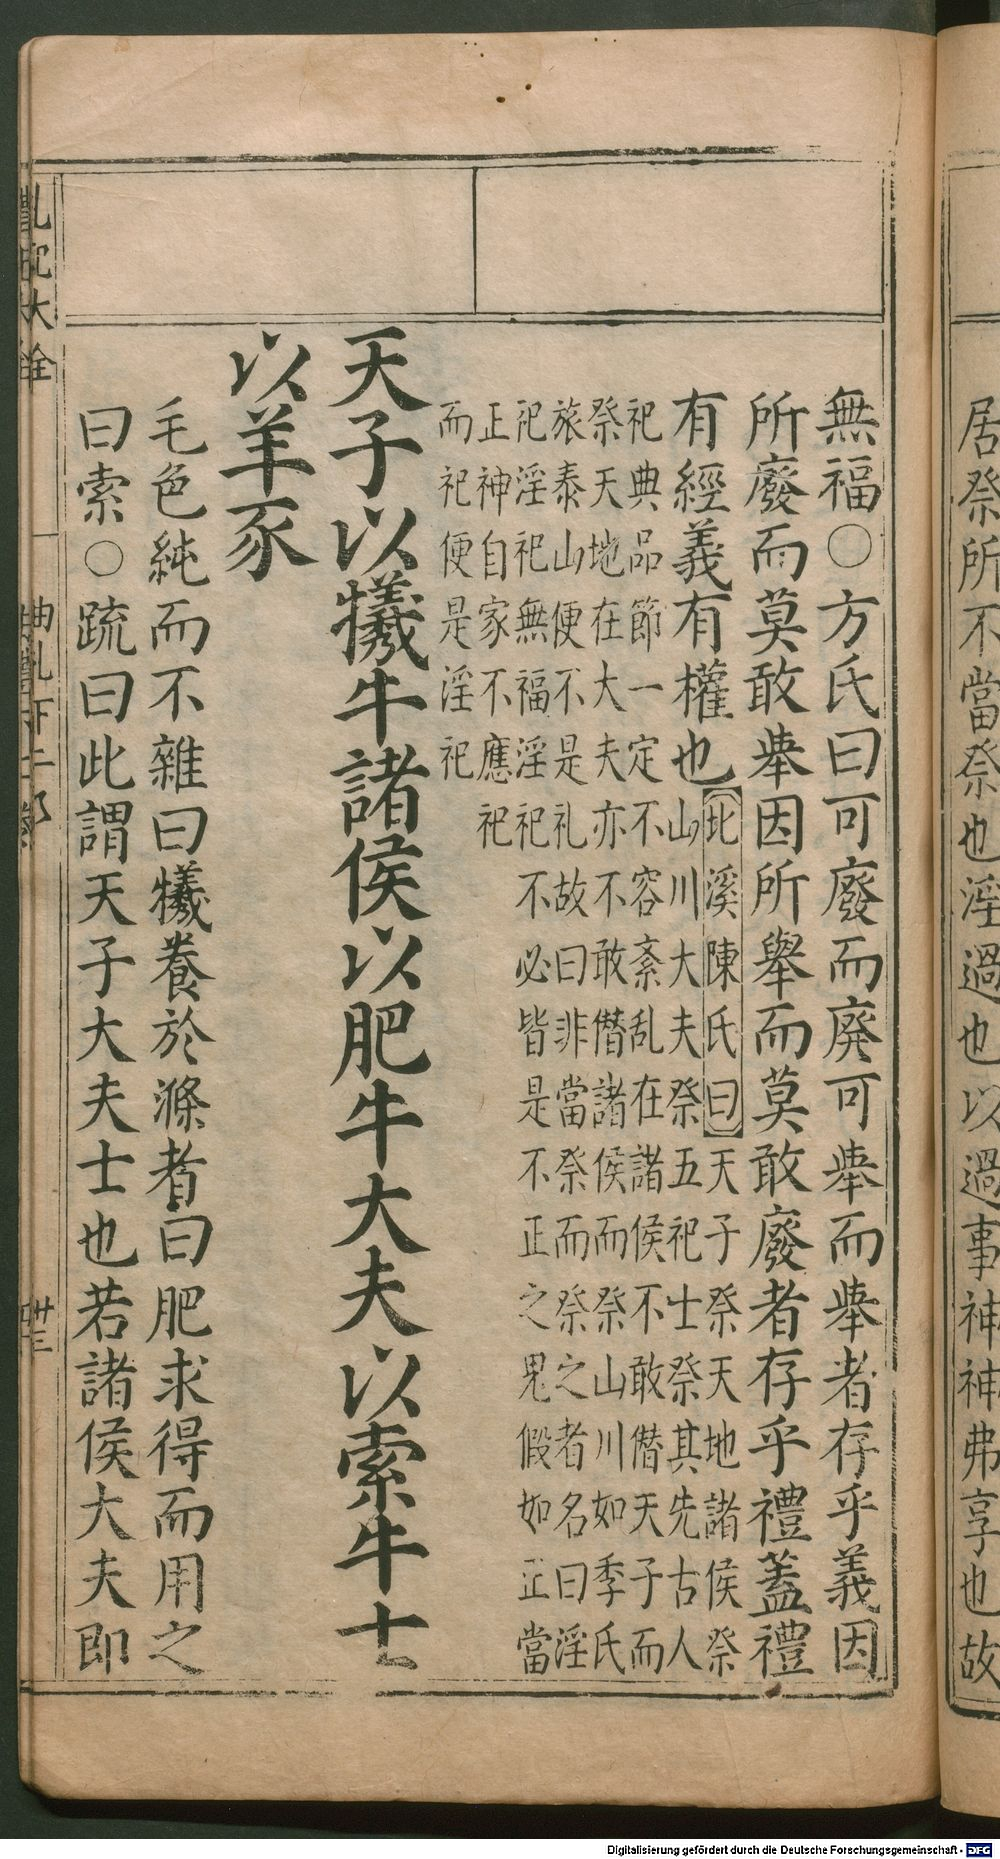 居祭所不當祭也淫過也以過事神神弗享也故
無福○方氏曰可廢而廢可舉而舉者存乎義因
所廢而莫敢舉因所舉而莫敢廢者存乎禮蓋禮
有經義有權也
北溪陳氏曰天子祭天地諸侯祭
山川大夫祭五祀士祭其先古人
祀典品節一定不容紊乱在諸侯不敢僭天子而
祭天地在大夫亦不敢僭諸侯而祭山川如季氏
旅泰山便不是礼故曰非當祭而祭之者名曰淫
祀淫祀無福淫祀不必皆是不正之鬼假如正當
正神自家不應祀
而祀便是淫祀
天子以犧牛諸侯以肥牛大夫以索牛士
以羊豕
毛色純而不雜曰犧養於滌者曰肥求得而用之
曰索○疏曰此謂天子大夫士也若諸侯大夫即
礼記大全
曲礼下二卷
卅三
Digitalisierung gefördert durch die Deutsche Forschungsgemeinschaft - DFG